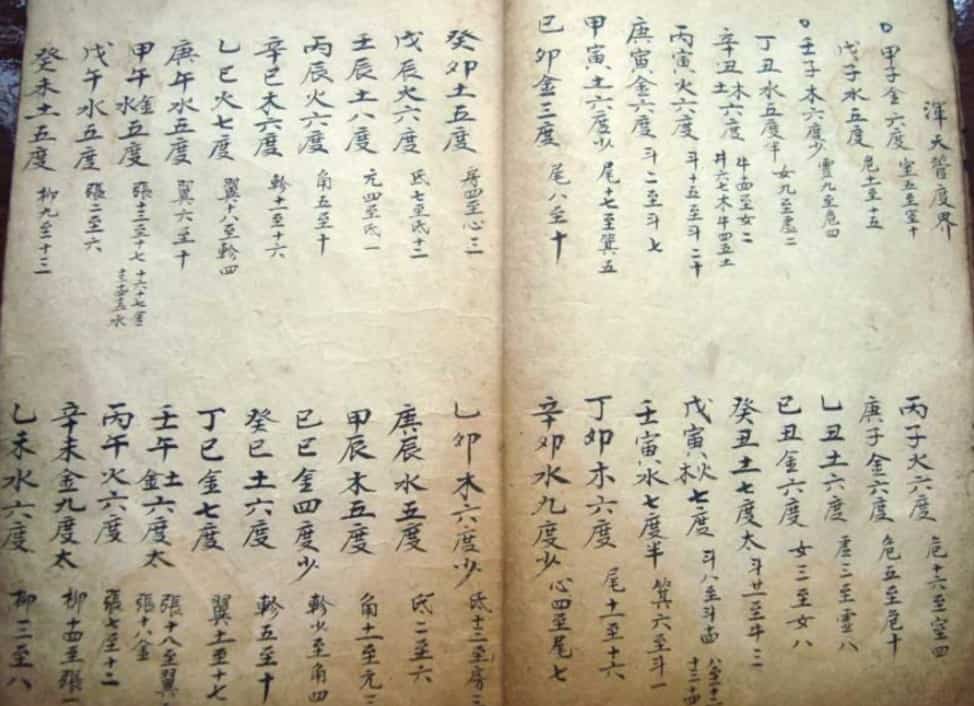 渾天度界
甲子金六度 室五至室十
丙子火六度 危十六至室四
戊子水五度 危十一至十五
庚子金六度 危五至危十
壬子木六度少 虛九至危四
乙土六度 虛三至虛八
丁丑水五度半 女九至虛二
己丑金六度 女三至女八
辛丑木土六度 牛四至女二
斗六七木牛四五土
癸丑土七度太 斗廿一至牛三
丙寅火六度 斗十五至斗二十
戊寅七度 斗八至斗十四
庚寅金六度 斗二至斗七
壬寅水七度半 箕六至斗一
甲寅土六度少 尾十七至箕五
丁卯木六度 尾十一至十六
己卯金三度 尾八至十
辛卯水九度少 心四至尾七
癸卯土五度 房四至心三
乙卯木六度少 氐十三至房三
戊辰火六度 氐七至氐十二
庚辰水五度 氐二至六
壬辰土八度 亢四至氐一
甲辰木五度 角十一至亢三
丙辰火六度 角五至十
己巳金四度少 軫少至角四
辛巳木六度 軫十一至十六
癸巳土六度 軫五至十
乙巳火七度 翼十八至軫四
丁巳金七度 翼十一至十七
庚午水五度 翼六至十
壬午金土六度太 張十八至翼
張十八金
甲午金水五度 張十三至十七 十六十七金
丙午火六度 張七至十二
戊午水五度 張二至六
辛未金九度太 柳十四至張一
癸未土五度 柳九至十三
乙未水六度 柳三至八